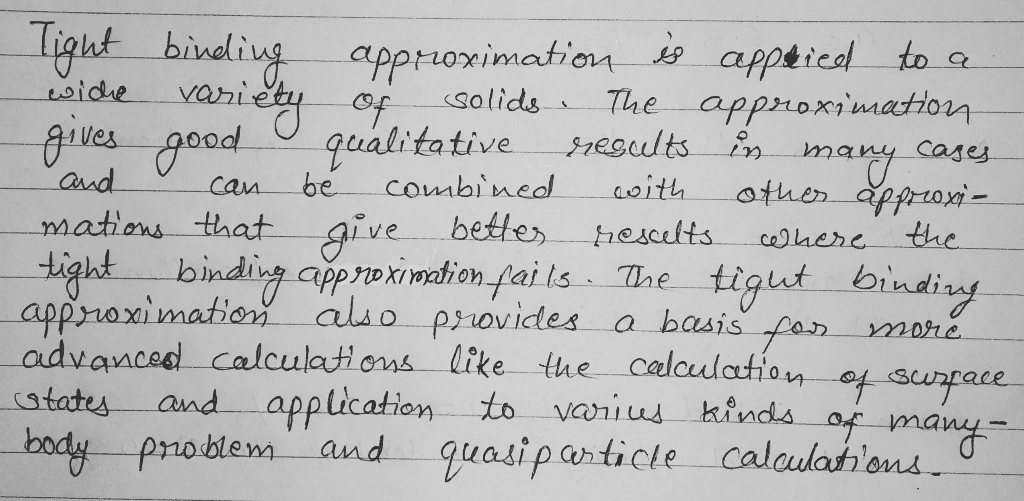 Tight binding approximation is applied to a
wide variety of solids. The approximation
gives good qualitative results in many cases
and can be combined with other approxi-
mations that give better results where the
tight binding approximation fails. The tight binding
approximation also provides a basis for more
advanced calculations like the calculation of surface
states and application to varius kinds of many-
body problem and quasiparticle calculations.